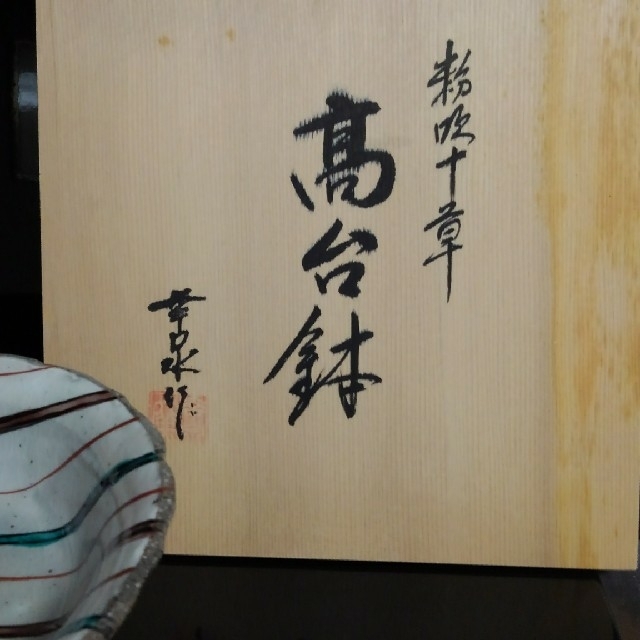 粉吹十草
髙台鉢
幸泉作